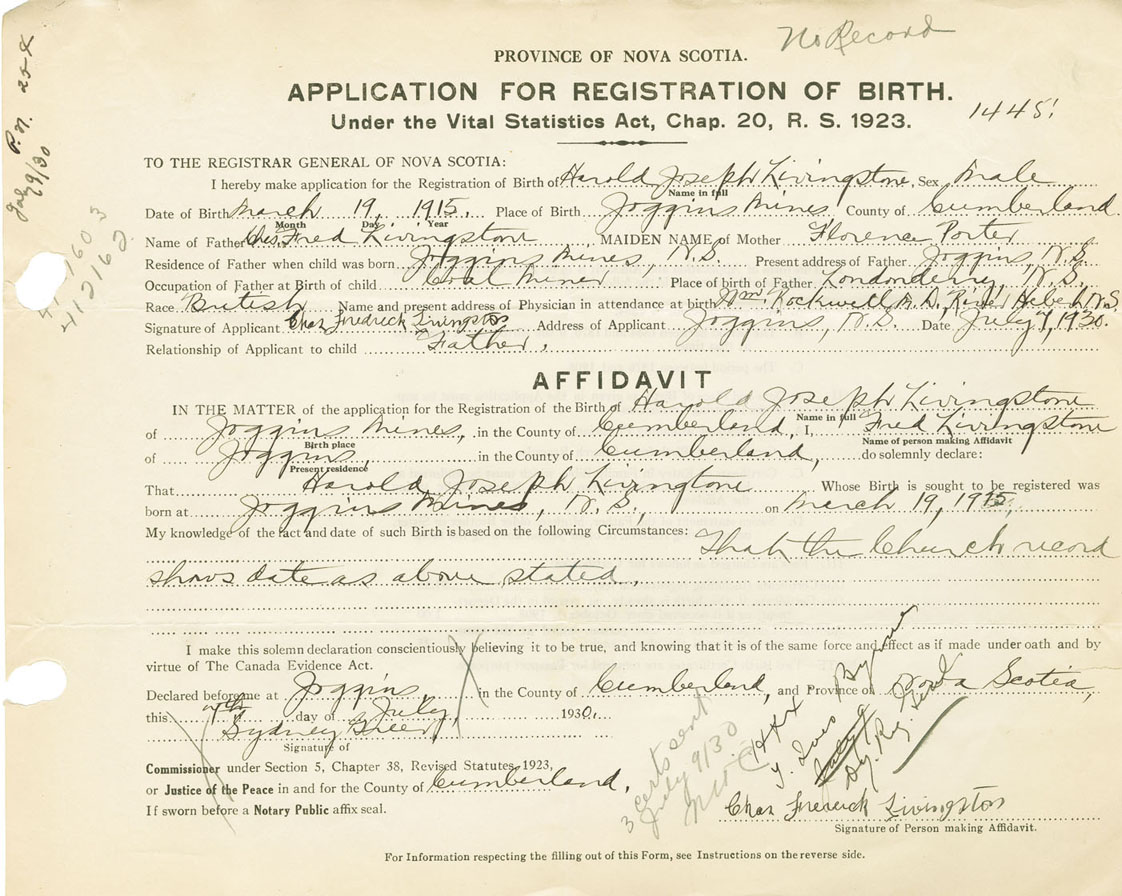 No Record
PROVINCE OF NOVA SCOTIA.
APPLICATION FOR REGISTRATION OF BIRTH.
Under the Vital Statistics Act, Chap. 20, R. S. 1923.
1445
P.N. 25-X
July 9/30
412162
TO THE REGISTRAR GENERAL OF NOVA SCOTIA:
I hereby make application for the Registration of Birth of Harold Joseph Livingstone, Sex Male
Name in full
Date of Birth March 19, 1915. Place of Birth Joggins Mines, County of Cumberland.
Month Day Year
Name of Father Chas. Fred Livingstone MAIDEN NAME of Mother Florence Porter
Residence of Father when child was born Joggins Mines, N.S. Present address of Father Joggins, N.S.
Occupation of Father at Birth of child Coal Miner Place of birth of Father Londonderry, N.S.,
Race British Name and present address of Physician in attendance at birth Wm. Rockwell M.D., River Hebert N.S.
Signature of Applicant Chas Fredrick Livingston Address of Applicant Joggins, N.S. Date July 7, 1930.
Relationship of Applicant to child Father.
AFFIDAVIT
IN THE MATTER of the application for the Registration of the Birth of Harold Joseph Livingstone
Name in full
of Joggins Mines, in the County of Cumberland, I, Fred Livingstone
Birth place Name of person making Affidavit
of Joggins, in the County of Cumberland, do solemnly declare:
Present residence
That Harold Joseph Livingtone Whose Birth is sought to be registered was
born at Joggins Mines, N.S., on March 19, 1915,
My knowledge of the fact and date of such Birth is based on the following Circumstances: That the Church record
shows date as above stated.
I make this solemn declaration conscientiously believing it to be true, and knowing that it is of the same force and effect as if made under oath and by
virtue of The Canada Evidence Act.
Declared before me at Joggins, in the County of Cumberland, and Province of Nova Scotia,
this 7th day of July, 1930.
Sydney Greer
Signature of
Commissioner under Section 5, Chapter 38, Revised Statutes, 1923,
or Justice of the Peace in and for the County of Cumberland,
If sworn before a Notary Public affix seal.
3 certs sent
July 9/30
Chas Frerick Livingston
Signature of Person making Affidavit.
For Information respecting the filling out of this Form, see Instructions on the reverse side.